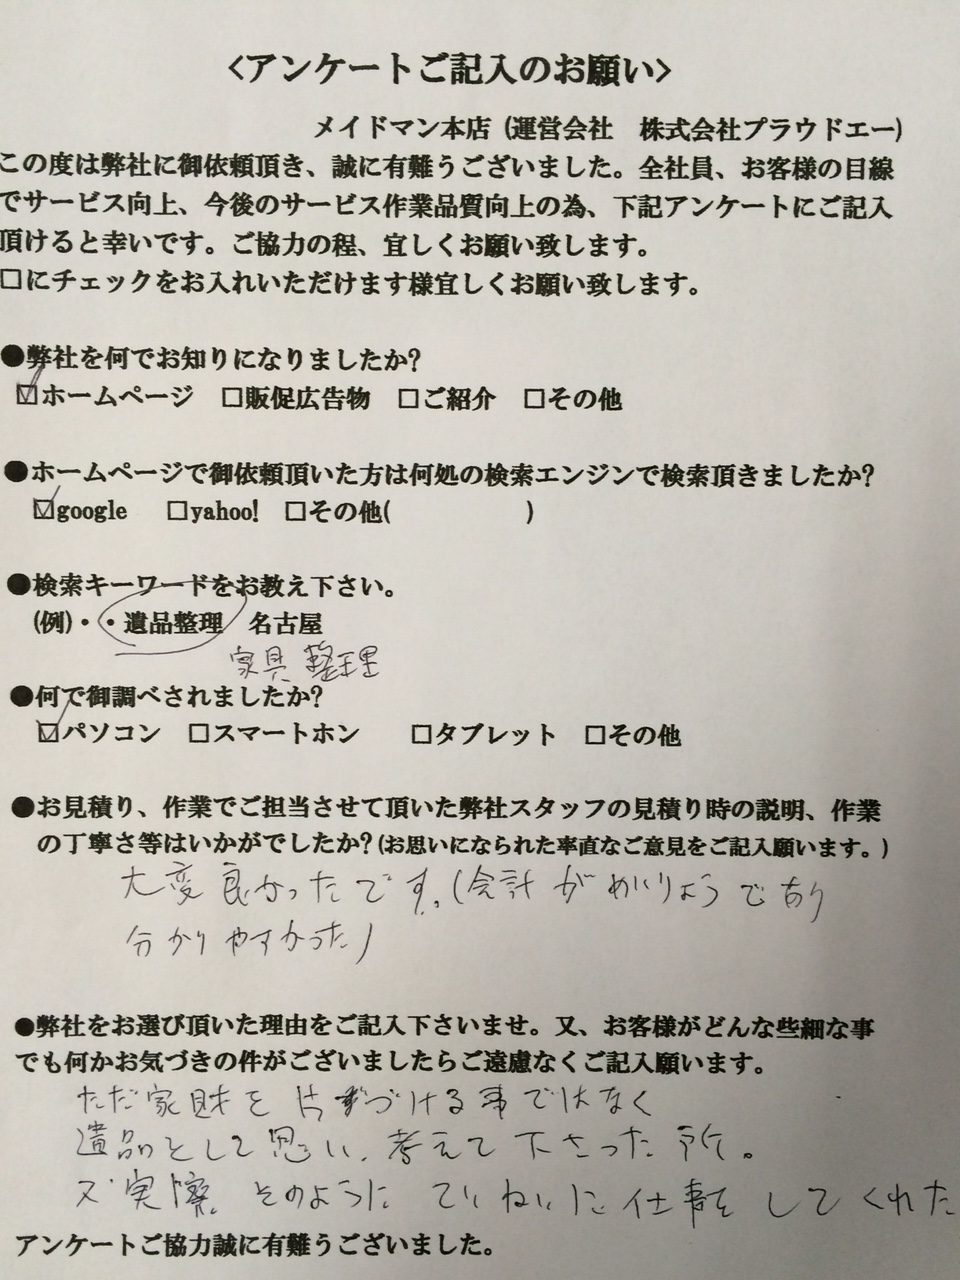 <アンケートご記入のお願い>
メイドマン本店 (運営会社　株式会社プラウドエー)
この度は弊社に御依頼頂き、誠に有難うございました。全社員、お客様の目線
でサービス向上、今後のサービス作業品質向上の為、下記アンケートにご記入
頂けると幸いです。ご協力の程、宜しくお願い致します。
□にチェックをお入れいただけます様宜しくお願い致します。
●弊社を何でお知りになりましたか?
☑ホームページ　□販促広告物　□ご紹介　□その他
●ホームページで御依頼頂いた方は何処の検索エンジンで検索頂きましたか?
☑google　□yahoo!　□その他(　　　　　)
●検索キーワードをお教え下さい。
(例)・・遺品整理　名古屋
家具 整理
●何で御調べされましたか?
☑パソコン　□スマートホン　□タブレット　□その他
●お見積り、作業でご担当させて頂いた弊社スタッフの見積り時の説明、作業
の丁寧さ等はいかがでしたか?(お思いになられた率直なご意見をご記入願います。)
大変良かったです。(会計がめいりょうであり
分かりやすかった)
●弊社をお選び頂いた理由をご記入下さいませ。又、お客様がどんな些細な事
でも何かお気づきの件がございましたらご遠慮なくご記入願います。
ただ家財を片づける事ではなく
遺品として思い、考えて下さった所。
又実際、そのようにていねいに仕事をしてくれた
アンケートご協力誠に有難うございました。